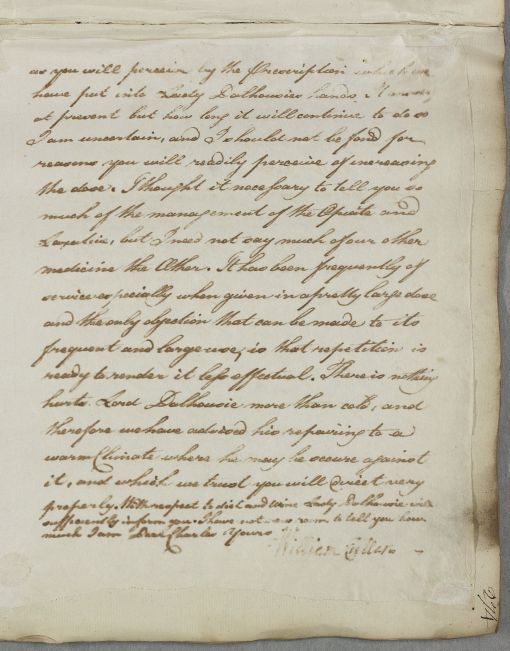 as you will perceive by the Prescription which we
have put into Lady Dalhousies hands. It
at present but how long it will continue to do so
I am uncertain, and I should not be fond for
reasons you will readily perceive of increasing
the dose. I thought it necessary to tell you so
much of the management of the Opiate and
Laxative, but I need not say much of our other
medicine the Æther. It has been frequently of
service especially when given in a pretty large dose
and the only objection that can be made to its
frequent and large use, is that repetition is
ready to render it less effectual. There is nothing
hurts Lord Dalhousie more than cold, and
therefore we have advised his repairing to a
warm Climate where he may be secure against
it, and which we trust you will direct very
properly. With respect to diet and Wine Lady Dalhousie will
sufficiently inform you. I have not room to tell you how
much I am Dear Charles Yours
William Cullen
274